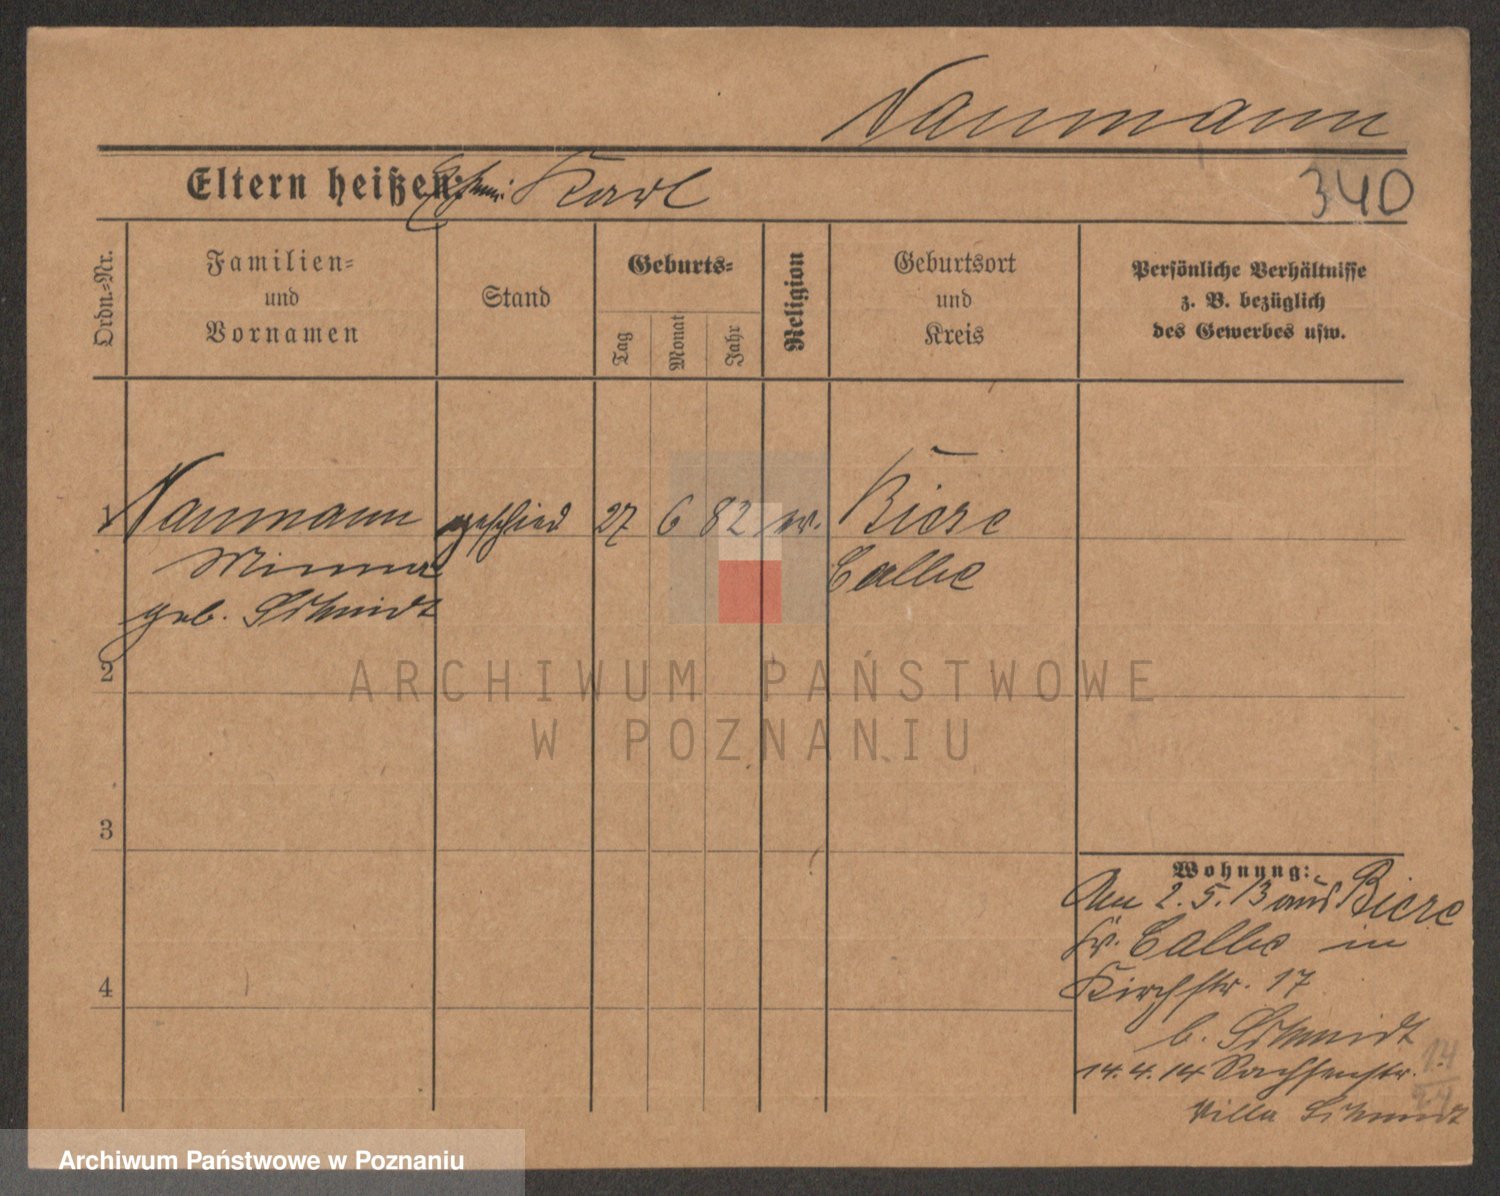 Naumann
340
Eltern heißen: Karl
Ordn.-Nr.
Familien-
und
Vornamen
Stand
Geburts-
Tag
Monat
Jahr
Religion
Geburtsort
und
Kreis
Persönliche Verhältnisse
z. B. bezüglich
des Gewerbes usw.
1 Naumann geschied 27 6 82 ev. Biere
Minna Calbe
geb. Schmidt
2
3
4
Wohnung:
Am 2.5.13 aus Biere
Kr. Calbe in
Kirchstr. 17
b. Schmidt
14.4.14 Sachsenstr.
Villa Schmidt
14
ARCHIWUM PAŃSTWOWE
W POZNANIU
Archiwum Państwowe w Poznaniu